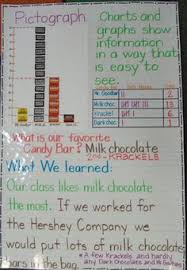 Pictograph
Charts and
graphs show
information
in a way that
is easy to
see.
Mr. Goodbar II 2
Milk choc 13
Krackel 6
Dark choc 1
What is our favorite
Candy Bar? Milk chocolate
2nd - KRACKELS
What We Learned:
Our class likes milk chocolate
the most. If we worked for
the Hershey Company we
would put lots of milk chocolate
bars in the bag.
* A few Krackels and hardly
any Dark Chocolate and Mr. Goodbars